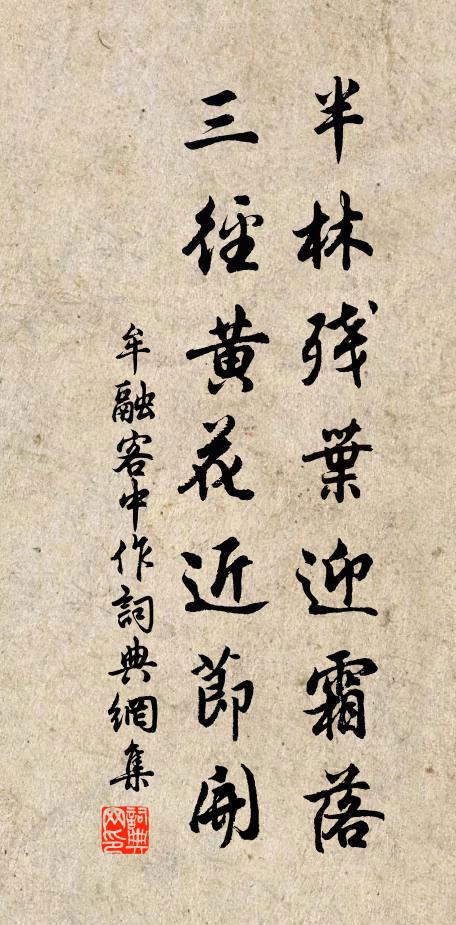 半林残葉迎霜落
三徑黄花近節開
牟融客中作詞典網集
詞典网印